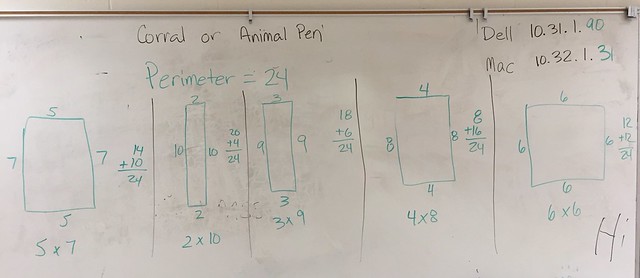 Corral or Animal Pen
Dell 10.31.1.90
Mac 10.32.1.31
Perimeter = 24
5
7
7
5
14
+10
24
5 x 7
2
10
10
2
20
+4
24
2 x 10
3
9
9
3
18
+6
24
3 x 9
4
8
8
4
8
+16
24
4 x 8
6
6
6
6
12
+12
24
6 x 6
Hi